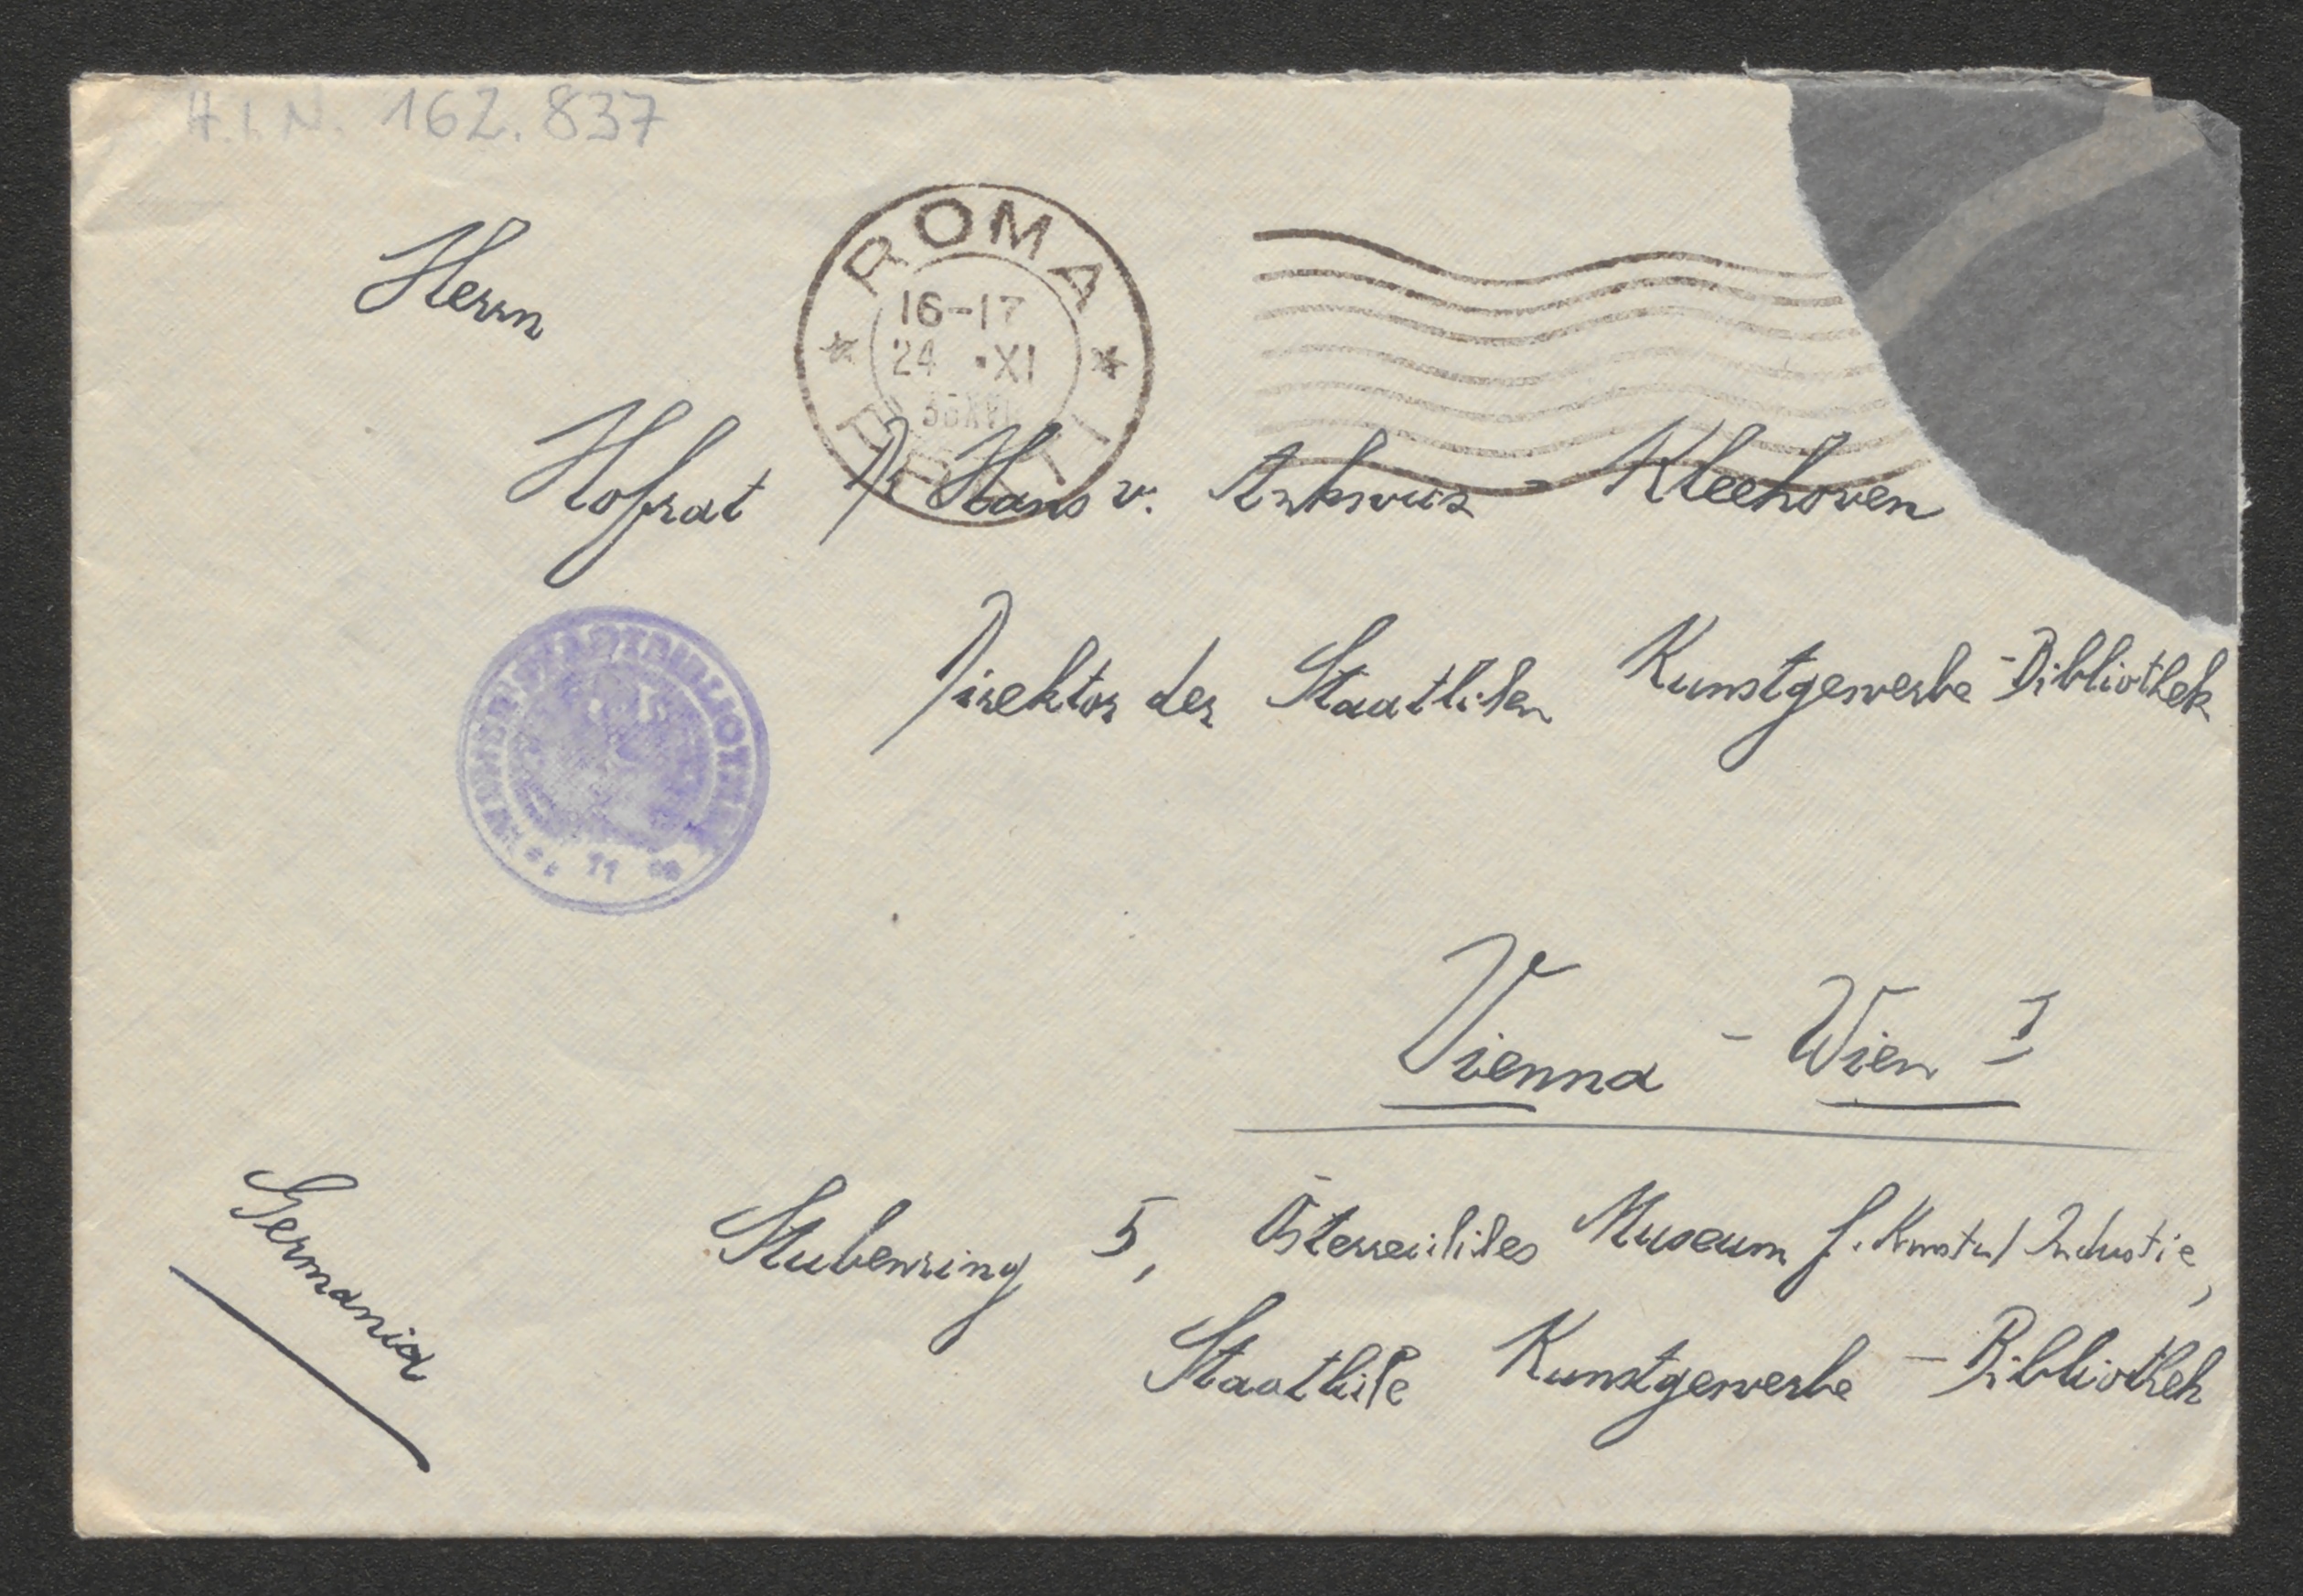 H.I.N. 162.837
ROMA
16-17
24 ·XI
Herrn
Hofrat Dr Hans v. Ankwicz - Kleehoven
Direktor der Staatlichen Kunstgewerbe - Bibliothek
WIENER STADTBIBLIOTHEK
Vienna - Wien I
Germania
Stubenring 5, Österreichisches Museum f. Kunst u/ Industrie,
Staatliche Kunstgewerbe - Bibliothek